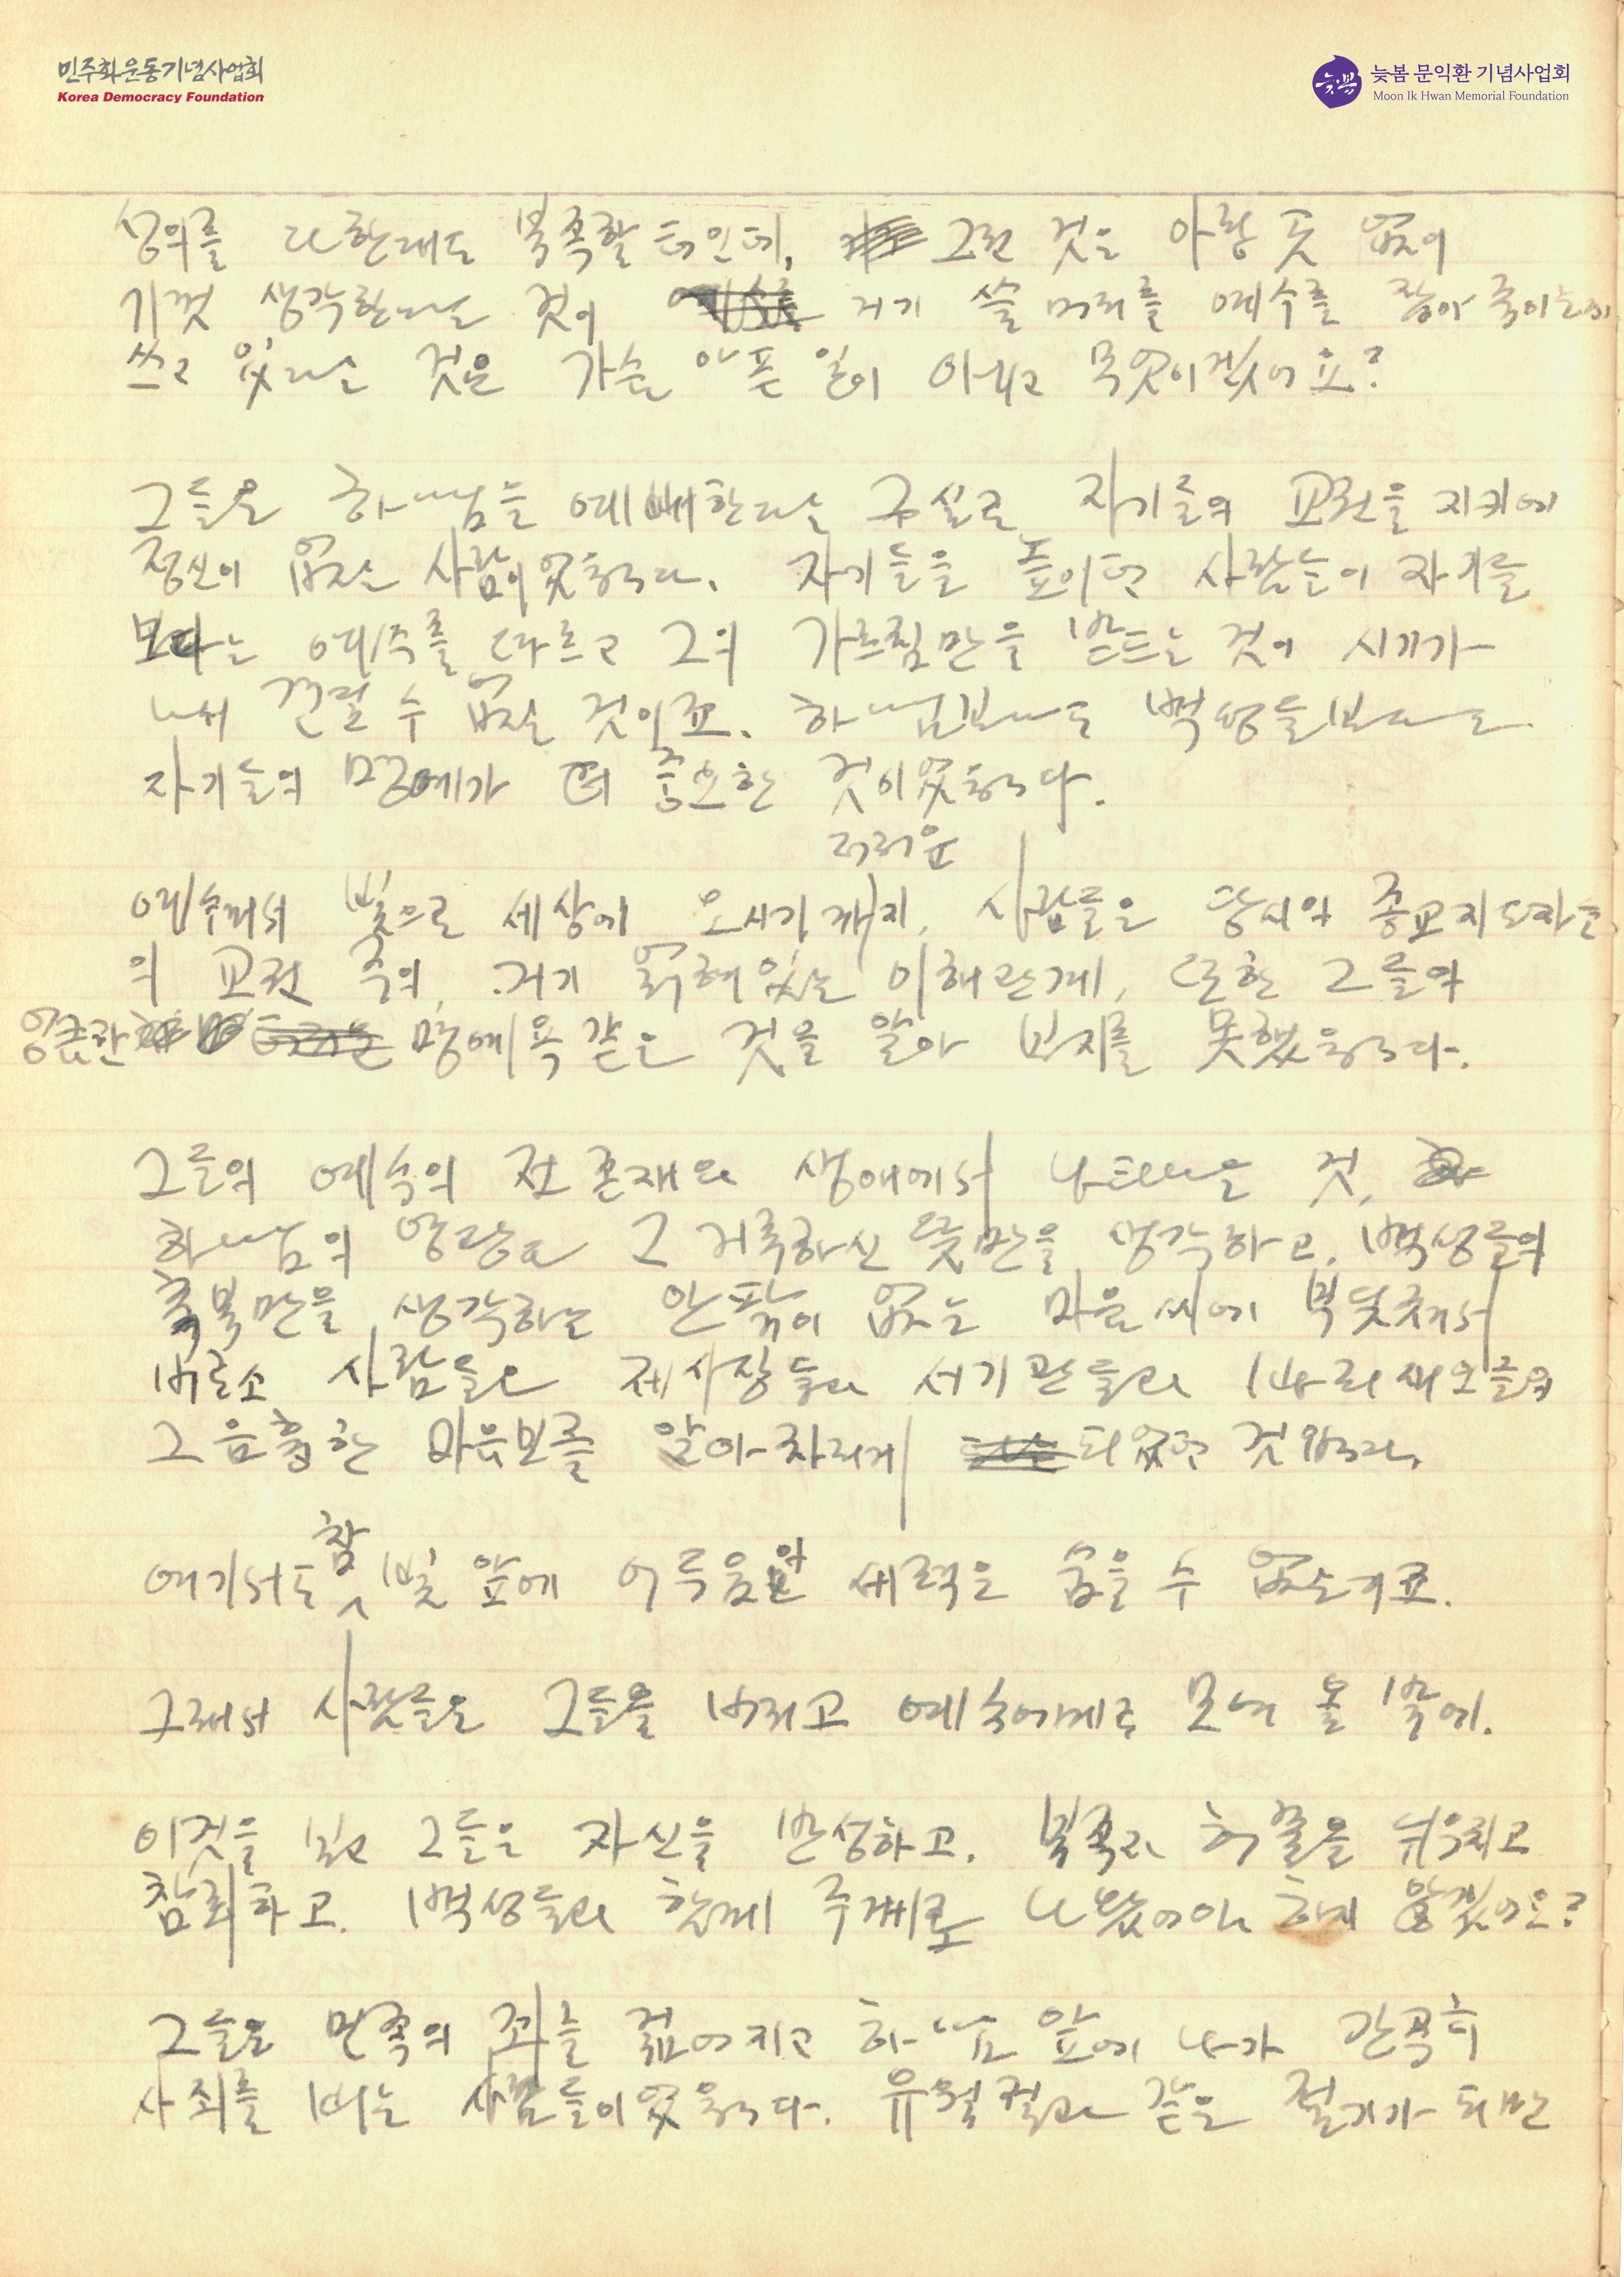 민주화운동기념사업회
Korea Democracy Foundation
늦봄
늦봄 문익환 기념사업회
Moon Ik Hwan Memorial Foundation
성의를 다한대도 부족할 터인데, 그런 것은 아랑 곳 없이
기껏 생각한다는 것이 거기 쓸 머리를 예수를 잡아 죽이는데
쓰고 있다는 것은 가슴 아픈 일이 아니고 무엇이겠어요?
그들은 하나님을 예배한다는 구실로 자기들의 교권을 지키에
정신이 없는 사람이었습니다. 자기들을 높이던 사람들이 자기들
보다는 예수를 따르고 그의 가르침만을 받드는 것이 시기가
나서 견딜 수 없는 것이죠. 하나님보다도 백성들보다도
자기들의 명예가 더 중요한 것이었습니다.
더러운
예수께서 빛으로 세상에 오시기까지, 사람들은 당시의 종교지도자들
의 교권 주의, 거기 얽혀있는 이해관계, 또한 그들의
엉큼한 명예욕 같은 것을 알아 보지를 못했습니다.
그들의 예수의 전 존재와 생애에서 나타나는 것,
하나님의 영광과 그 거룩하신 뜻만을 생각하고, 백성들의
축복만을 생각하는 안팎이 없는 마음씨에 부딪쳐서
비로소 사람들은 제사장들과 서기관들과 바리새인들의
그 음흉한 마음보를 알아차리게 되었던 것입니다.
여기서도 참 빛 앞에 어두움의 세력은 숨을 수 없는거죠.
그래서 사람들은 그들을 버리고 예수에게로 모여 올 밖에.
이것을 보고 그들은 자신을 반성하고, 부족과 허물을 뉘우치고
참회하고, 백성들과 함께 주께로 나왔어야 하지 않겠어요?
그들은 민족의 죄를 짊어지고 하나님 앞에 나가 간곡히
사죄를 비는 사람들이었습니다. 유월절과 같은 절기가 되면